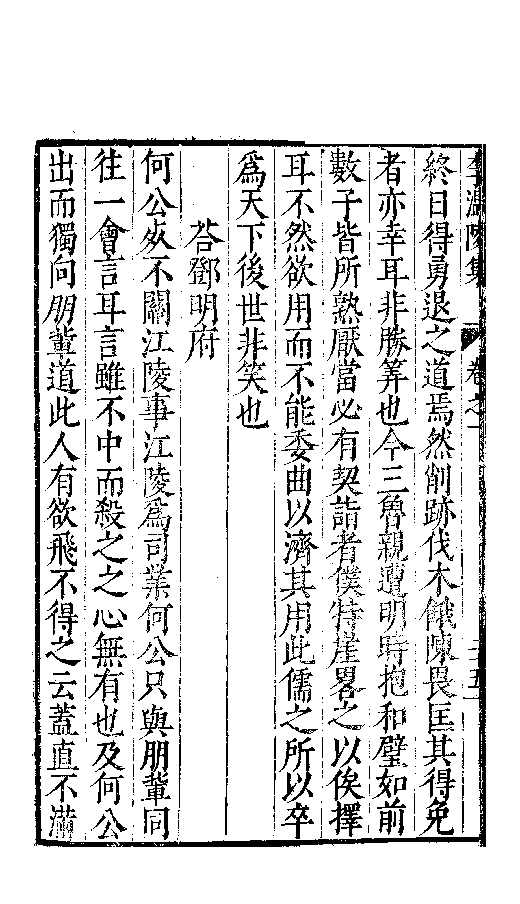 李溫陵集 卷之一 二五
終日得勇退之道焉然削跡伐木餓陳畏匡其得免
者亦幸耳非勝筭也今三魯親遭明時抱和璧如前
數子皆所熟厭當必有契詣者僕特崖畧之以俟擇
耳不然欲用而不能委曲以濟其用此儒之所以卒
爲天下後世非笑也
荅鄧明府
何公㱠不關江陵事江陵爲司業何公只與朋輩同
往一會言耳言雖不中而殺之之心無有也及何公
出而獨向朋輩道此人有欲飛不得之云蓋直不滿